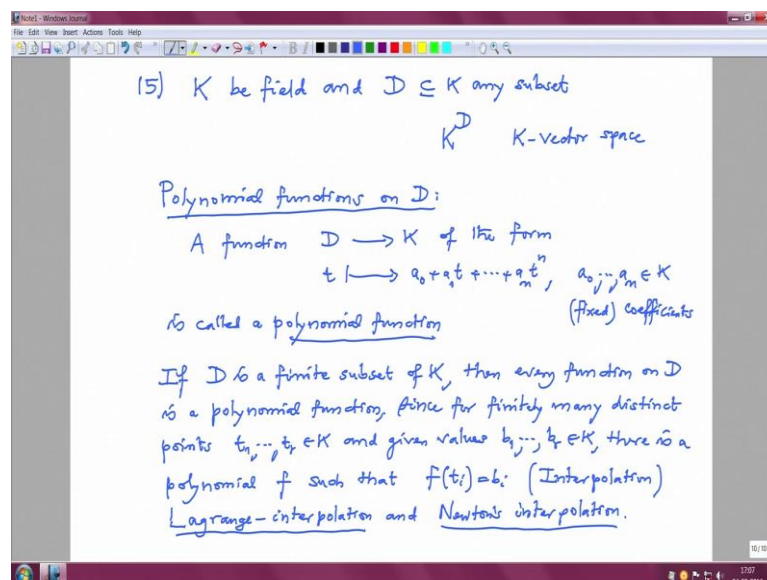 Note1 - Windows Journal
File Edit View Insert Actions Tools Help
(5) K be field and D ⊆ K any subset
K^D K-vector space
Polynomial functions on D:
A function D → K of the form
t ↦ a₀ + a₁t + ··· + aₙtⁿ, a₀, ..., aₙ ∈ K
(fixed) coefficients
is called a polynomial function
If D is a finite subset of K, then every function on D
is a polynomial function, since for finitely many distinct
points t₁, ..., tᵣ ∈ K and given values b₁, ..., bᵣ ∈ K, there is a
polynomial f such that f(tᵢ) = bᵢ (Interpolation)
Lagrange-interpolation and Newton's interpolation.
10/10
17:07